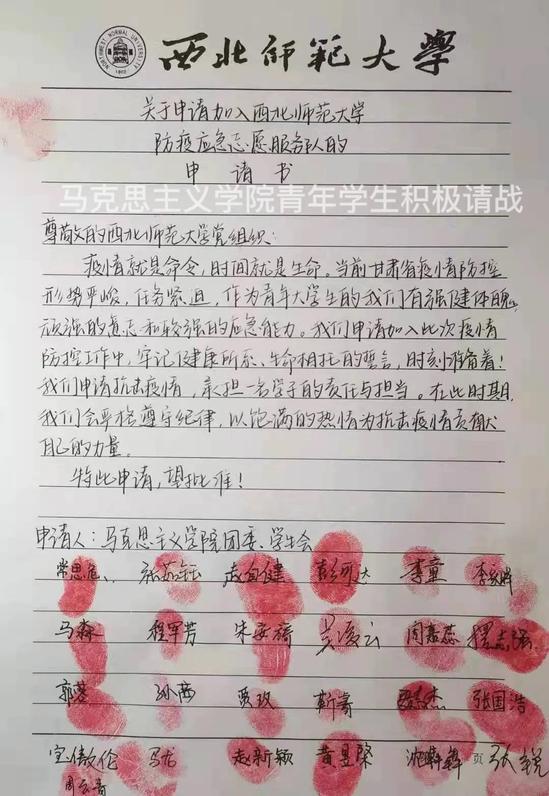 NORTHWEST NORMAL UNIVERSITY
1902
西北师范大学
关于申请加入西北师范大学
防疫应急志愿服务队的
申请书
马克思主义学院青年学生积极请战
尊敬的西北师范大学党组织：
疫情就是命令，时间就是生命。当前甘肃省疫情防控
形势严峻，任务紧迫，作为青年大学生的我们有强健体魄、
顽强的意志和较强的应急能力。我们申请加入此次疫情
防控工作中，牢记健康所系、生命相托的誓言，时刻准备着！
我们申请抗击疫情，承担一名学子的责任与担当。在此时期，
我们会严格遵守纪律，以饱满的热情为抗击疫情贡献
自己的力量。
特此申请，望批准！
申请人：马克思主义学院团委、学生会
常思危 赵自健 李童
马森 程军芳 朱安蓓 吴凌云 周嘉蕊
郭蓉 孙茜 贾玫 靳寿 张国浩
宝傲伦 马龙 赵新颖 黄昱荣 页 张锐